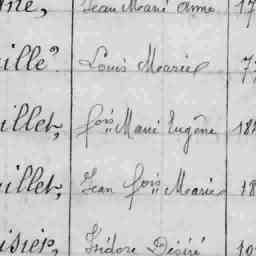 Jean Marie Anne, 17
aille? Louis Marie
illet, fois Marie Eugène 18
uillet, Jean fois Marie 18
isier, Isidore Désiré